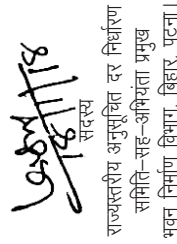 18/11/18
सदस्य
राज्यस्तरीय अनुसूचित दर निर्धारण
समिति–सह–अभियंता प्रमुख
भवन निर्माण विभाग, बिहार, पटना।